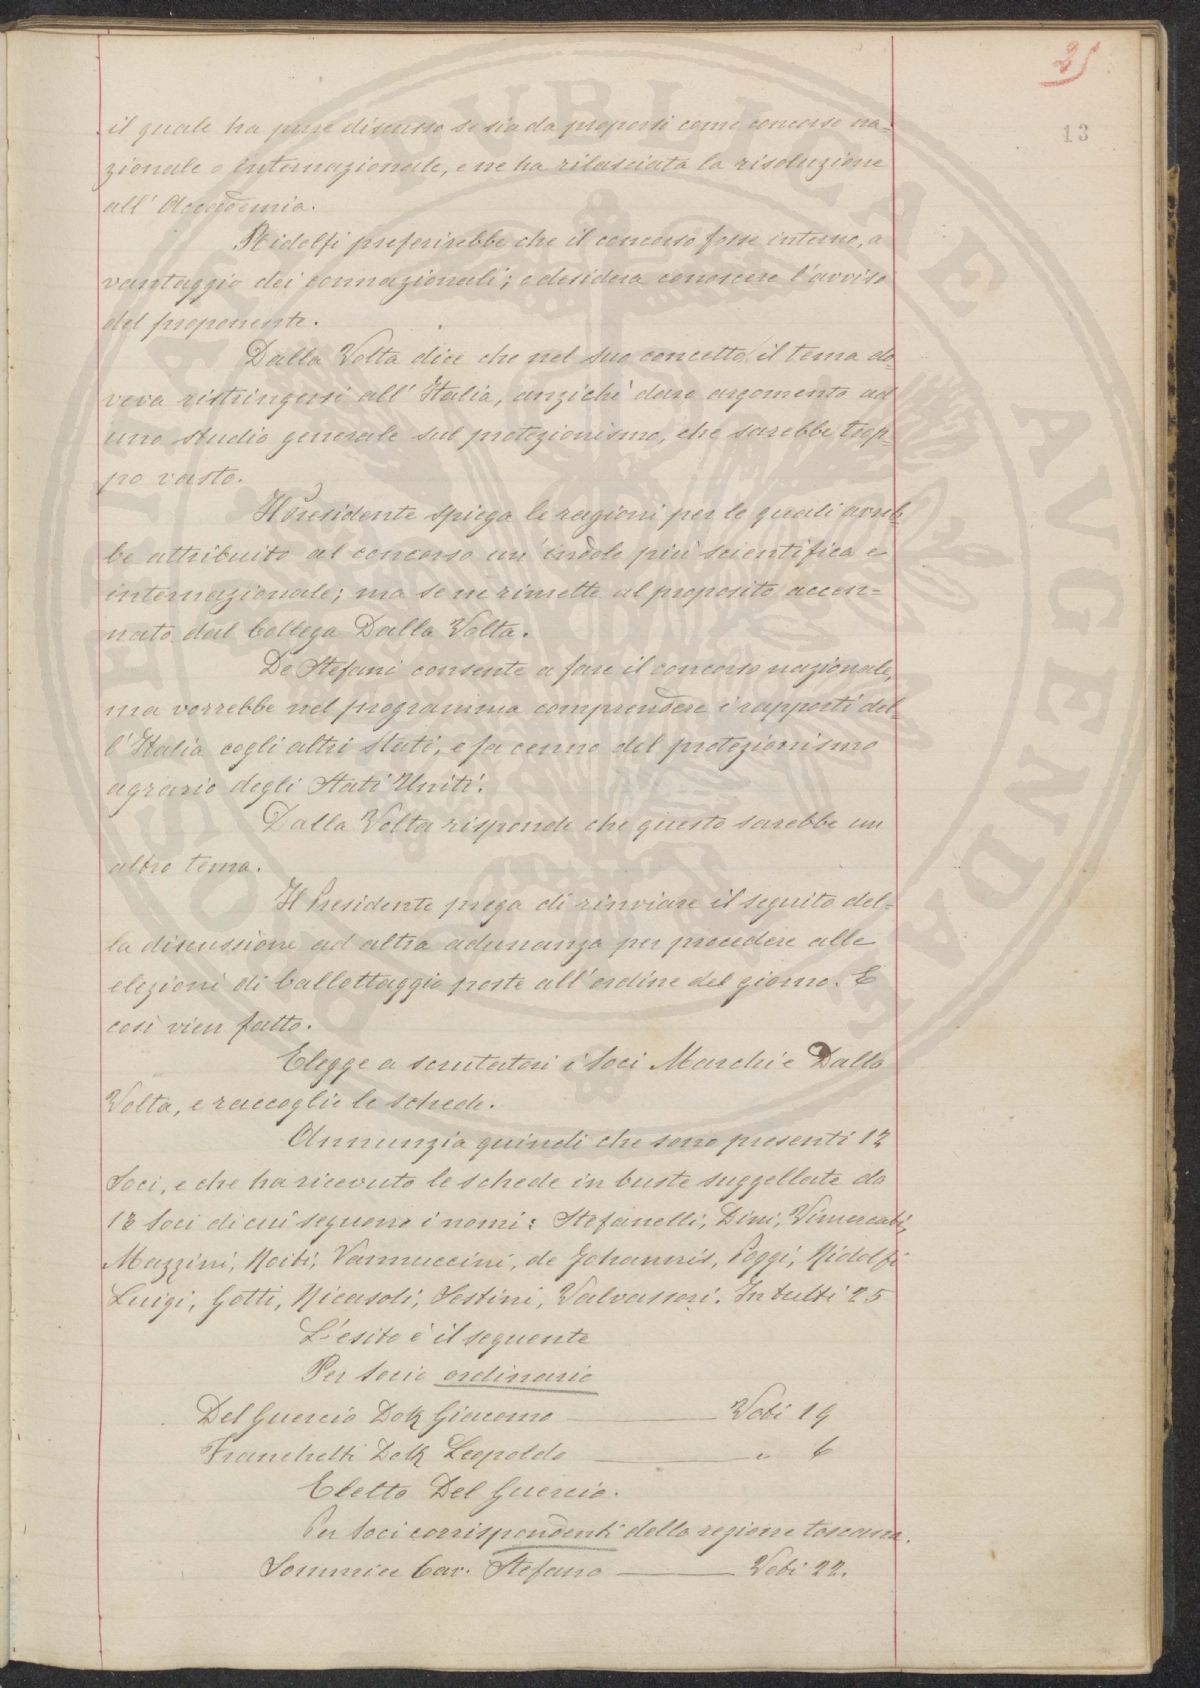 35
13
il quale ha pure discusso se sia da proporsi come concorso na-
zionale o internazionale, e ne ha rilasciata la risoluzione
all' Accademia.
Ridolfi preferirebbe che il concorso fosse interno, a
vantaggio dei connazionali; e desidera conoscere l'avviso
del proponente.
Dalla Volta dice che nel suo concetto il tema do-
veva ristringersi all' Italia, anzichè dare argomento ad
uno studio generale sul protezionismo, che sarebbe trop-
po vasto.
Il Presidente spiega le ragioni per le quali avreb-
be attribuito al concorso un' indole più scientifica e
internazionale; ma se ne rimette al proposito accen-
nato dal Collega Dalla Volta.
De Stefani consente a fare il concorso nazionale,
ma vorrebbe nel programma comprendere i rapporti del-
l'Italia cogli altri Stati, e fa cenno del protezionismo
agrario degli Stati Uniti.
Dalla Volta risponde che questo sarebbe un
altro tema.
Il Presidente prega di rinviare il seguito del-
la discussione ad altra adunanza per procedere alle
elezioni di ballottaggio poste all' ordine del giorno. E
così vien fatto.
Elegge a scrutatori i Soci Marchi e Dalla
Volta, e raccoglie le schede.
Annunzia quindi che sono presenti 12
Soci, e che ha ricevuto le schede in buste suggellate da
13 Soci di cui seguono i nomi: Stefanelli, Dini, Vimercati,
Mazzini, Roiti, Vannuccini, de Johannis, Poggi, Ridolfi
Luigi, Gotti, Ricasoli, Sestini, Valvassori. In tutti 25
L'esito è il seguente
Per Socio ordinario
Del Guercio Dott. Giacomo Voti 19
Franchetti Dott. Leopoldo " 6
Eletto Del Guercio.
Per Soci corrispondenti della regione toscana.
Sommier Cav. Stefano Voti 22.